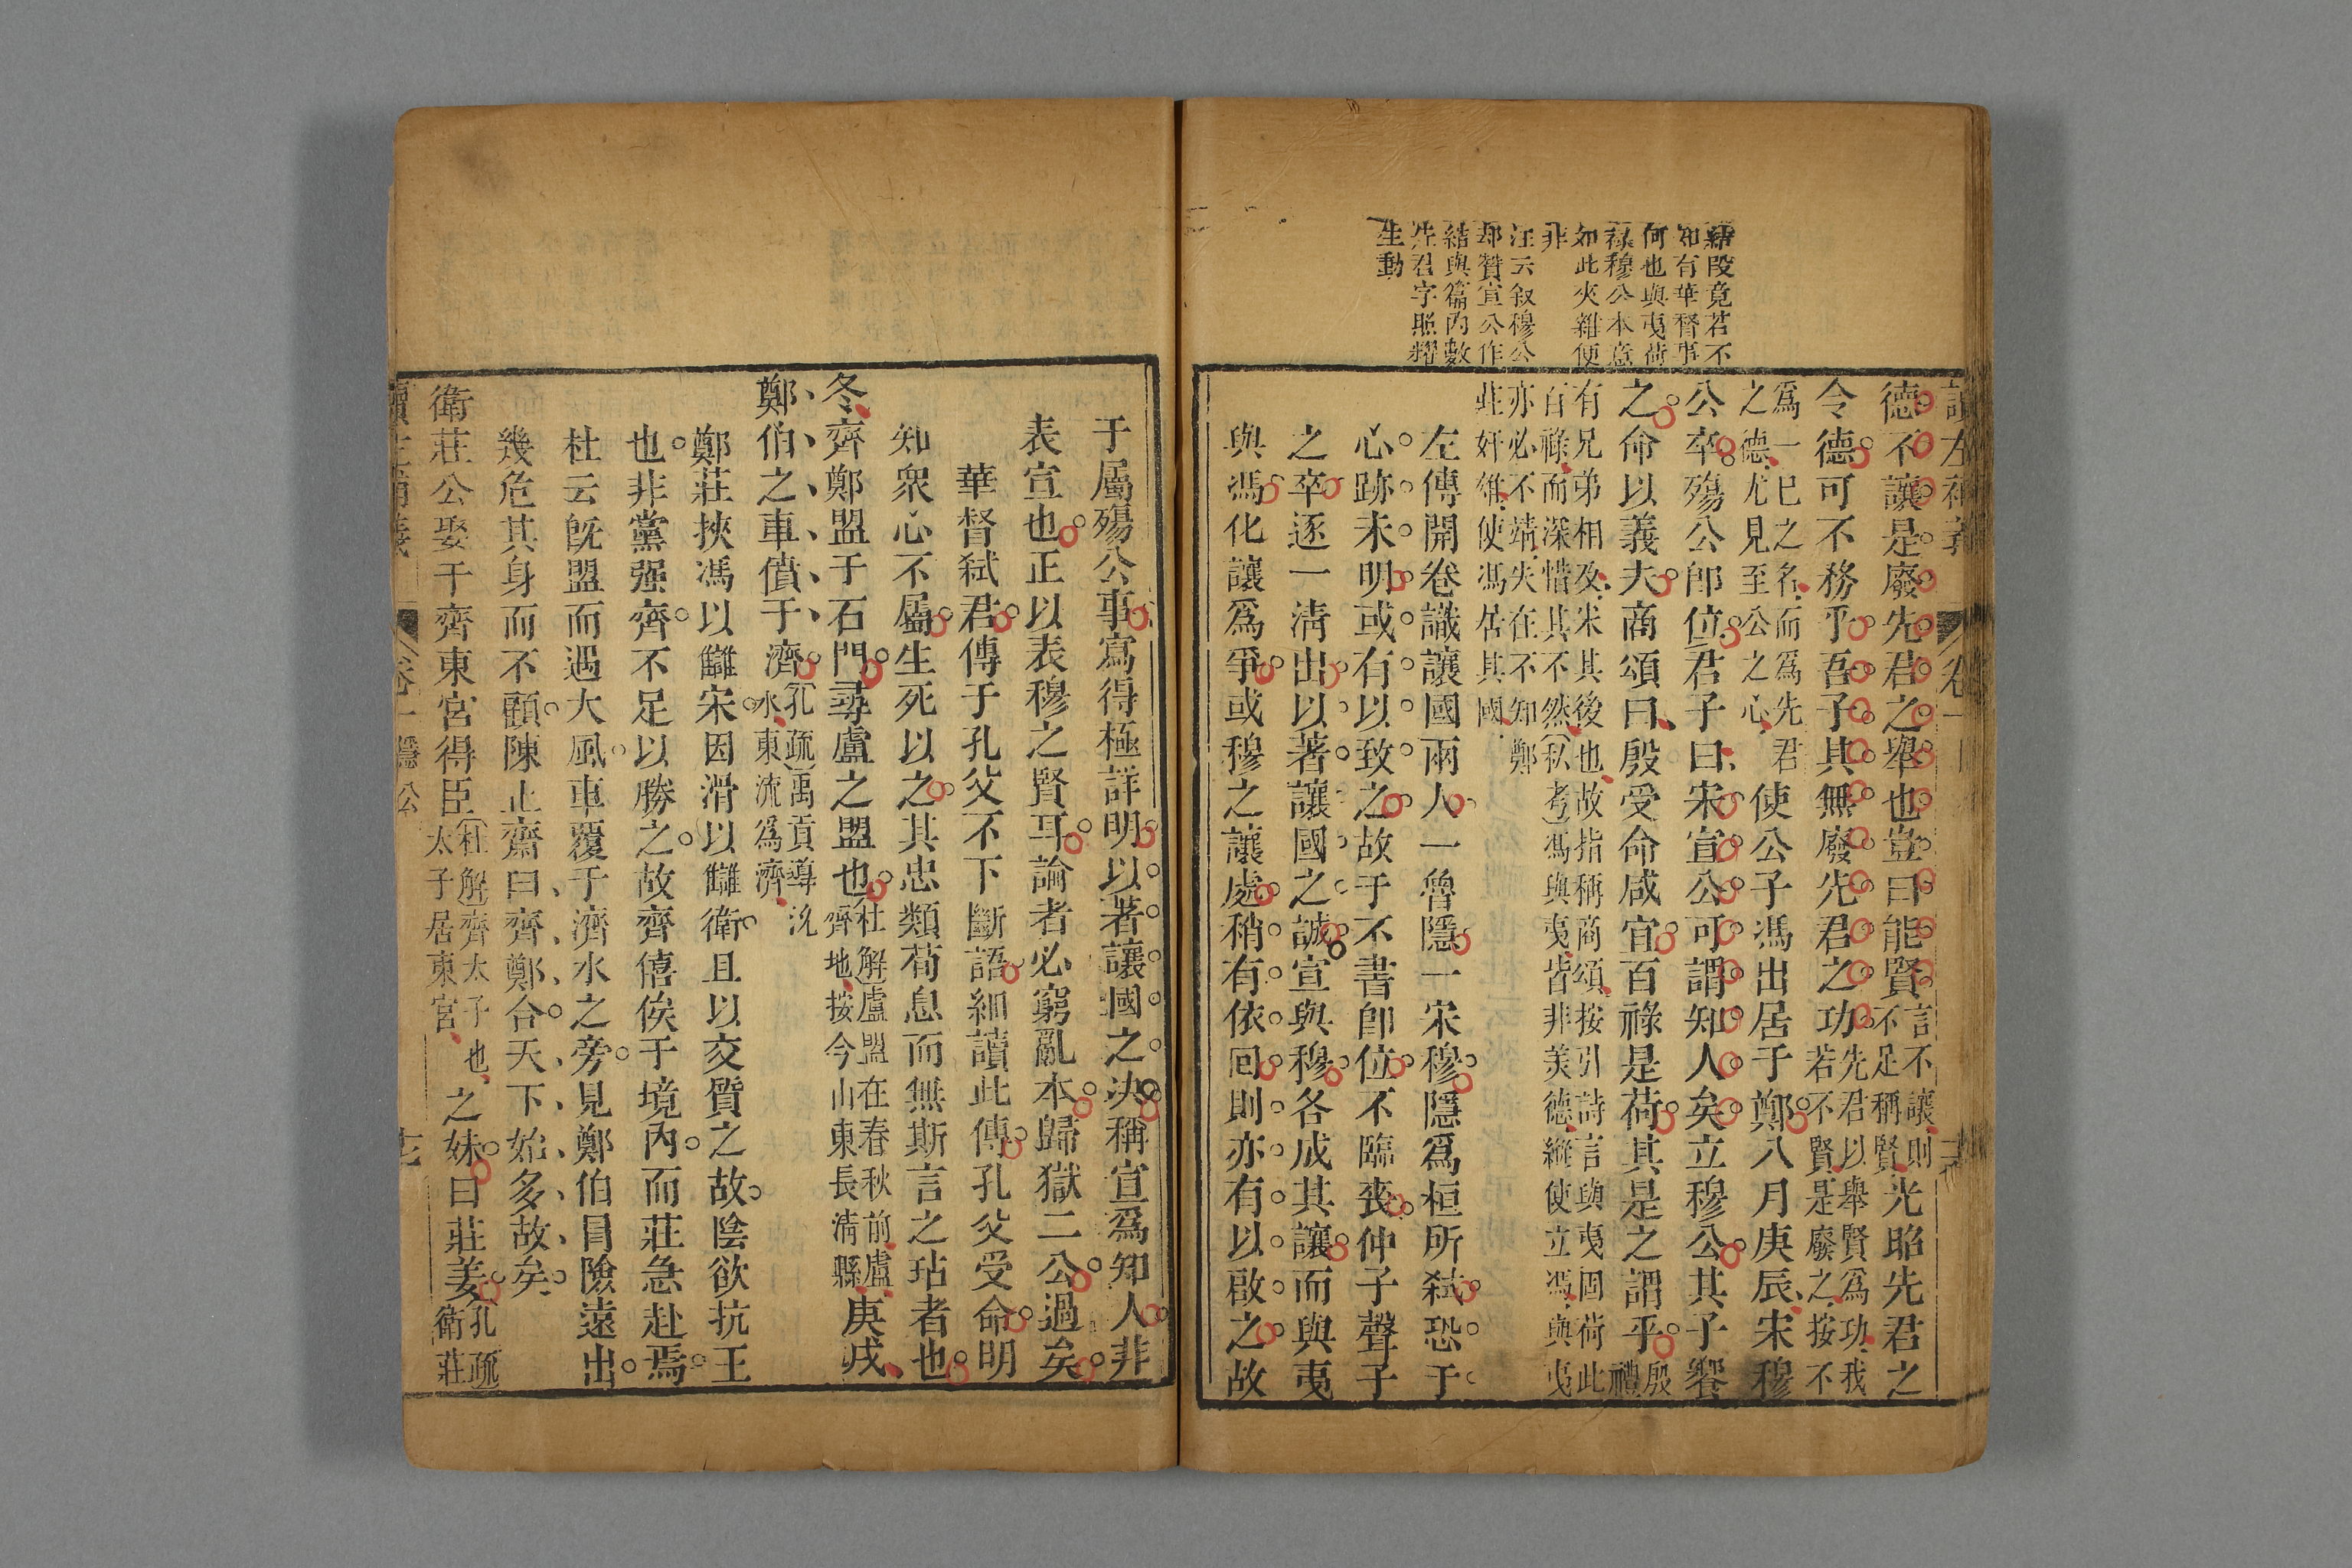 結段竟若不
知有華督事
何也與夷荷
祿穆公本意
如此夾雜便
非
汪云叙穆公
却贊宣公作
結與篇內數
先君字照耀
生動
德不讓是廢先君之舉也豈曰能賢言不讓則不足稱賢光昭先君之
令德可不務乎吾子其無廢先君之功先君以舉賢爲功我若不賢是廢之按不
爲一巳之名而爲先君之德尤見至公之心使公子馮出居于鄭八月庚辰宋穆
公卒殤公卽位君子曰宋宣公可謂知人矣立穆公其子饗
之命以義夫商頌曰殷受命咸宜百祿是荷其是之謂乎殷禮
有兄弟相及宋其後也故指稱商頌按引詩言與夷固荷此百祿而深惜其不然私考馮與夷皆非美德縱使立馮與夷
亦必不靖失在不知鄭莊奸雄使馮居其國
左傳開卷識讓國兩人一魯隱一宋穆隱爲桓所弒恐于
心跡未明或有以致之故于不書卽位不臨喪仲子聲子
之卒逐一清出以著讓國之誠宣與穆各成其讓而與夷
與馮化讓爲爭或穆之讓處稍有依回則亦有以啟之故
于屬殤公事寫得極詳明以著讓國之決稱宣爲知人非
表宣也正以表穆之賢耳論者必窮亂本歸獄二公過矣
華督弒君傳于孔父不下斷語細讀此傳孔父受命明
知衆心不屬生死以之其忠類荀息而無斯言之玷者也
冬齊鄭盟于石門尋盧之盟也杜解盧盟在春秋前盧齊地按今山東長清縣庚戌
鄭伯之車僨于濟孔疏禹貢導沇水東流爲濟
鄭莊挾馮以讎宋因滑以讎衛且以交質之故陰欲抗王
也非黨强齊不足以勝之故齊僖侯于境內而莊急赴焉
杜云旣盟而遇大風車覆于濟水之旁見鄭伯冒險遠出
幾危其身而不顧陳止齋曰齊鄭合天下始多故矣
衛莊公娶于齊東宮得臣杜解齊太子也太子居東宮之妹曰莊姜孔疏衛莊
卷一隱公